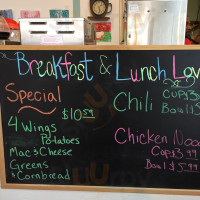 Breakfast & Lunch
Special
$10.59
4 Wings
Potatoes
Mac & Cheese
Greens
& Cornbread
Chili
Cup 3
Bowl
Chicken
Cup 3.99
Bowl 5.99